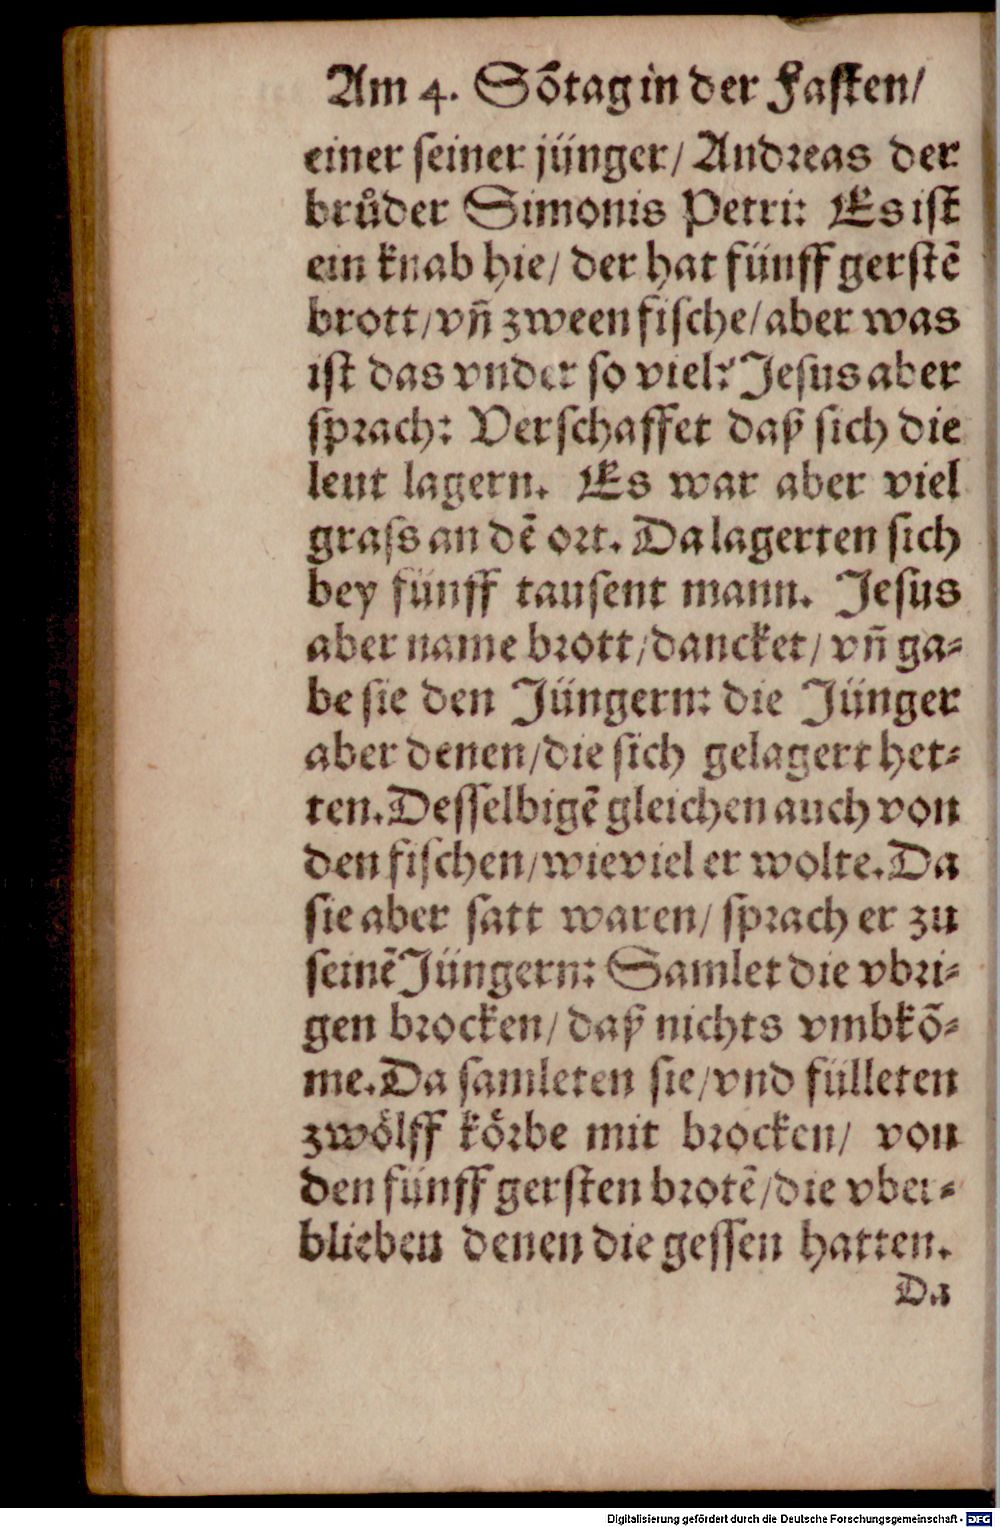 Am 4. Sõtag in der Faſten/
einer ſeiner jünger/ Andꝛeas der
bruͦder Simonis Petri: Es iſt
ein knab hie/ der hat fünff gerſtẽ
brott/ vn̄ zween fiſche/ aber was
iſt das vnder ſo viel? Jeſus aber
ſpꝛach: Verſchaffet daß ſich die
leut lagern. Es war aber viel
graſs an dẽ oꝛt. Da lagerten ſich
bey fünff tauſent mann. Jeſus
aber name bꝛott/ dancket/ vn̄ ga⸗
be ſie den Jüngern: die Jünger
aber denen/ die ſich gelagert het⸗
ten. Deſſelbigẽ gleichen auch von
den fiſchen/ wieviel er wolte. Da
ſie aber ſatt waren/ ſpꝛach er zu
ſeinẽ Jüngern: Samlet die vbꝛi⸗
gen bꝛocken/ daß nichts vmbkõ⸗
me. Da ſamleten ſie/ vnd fülleten
zwoͤlff koͤꝛbe mit bꝛocken/ von
den fünff gerſten bꝛotẽ/ die vber⸗
blieben denen die geſſen hatten.
Da
Digitalisierung gefördert durch die Deutsche Forschungsgemeinschaft - DFG